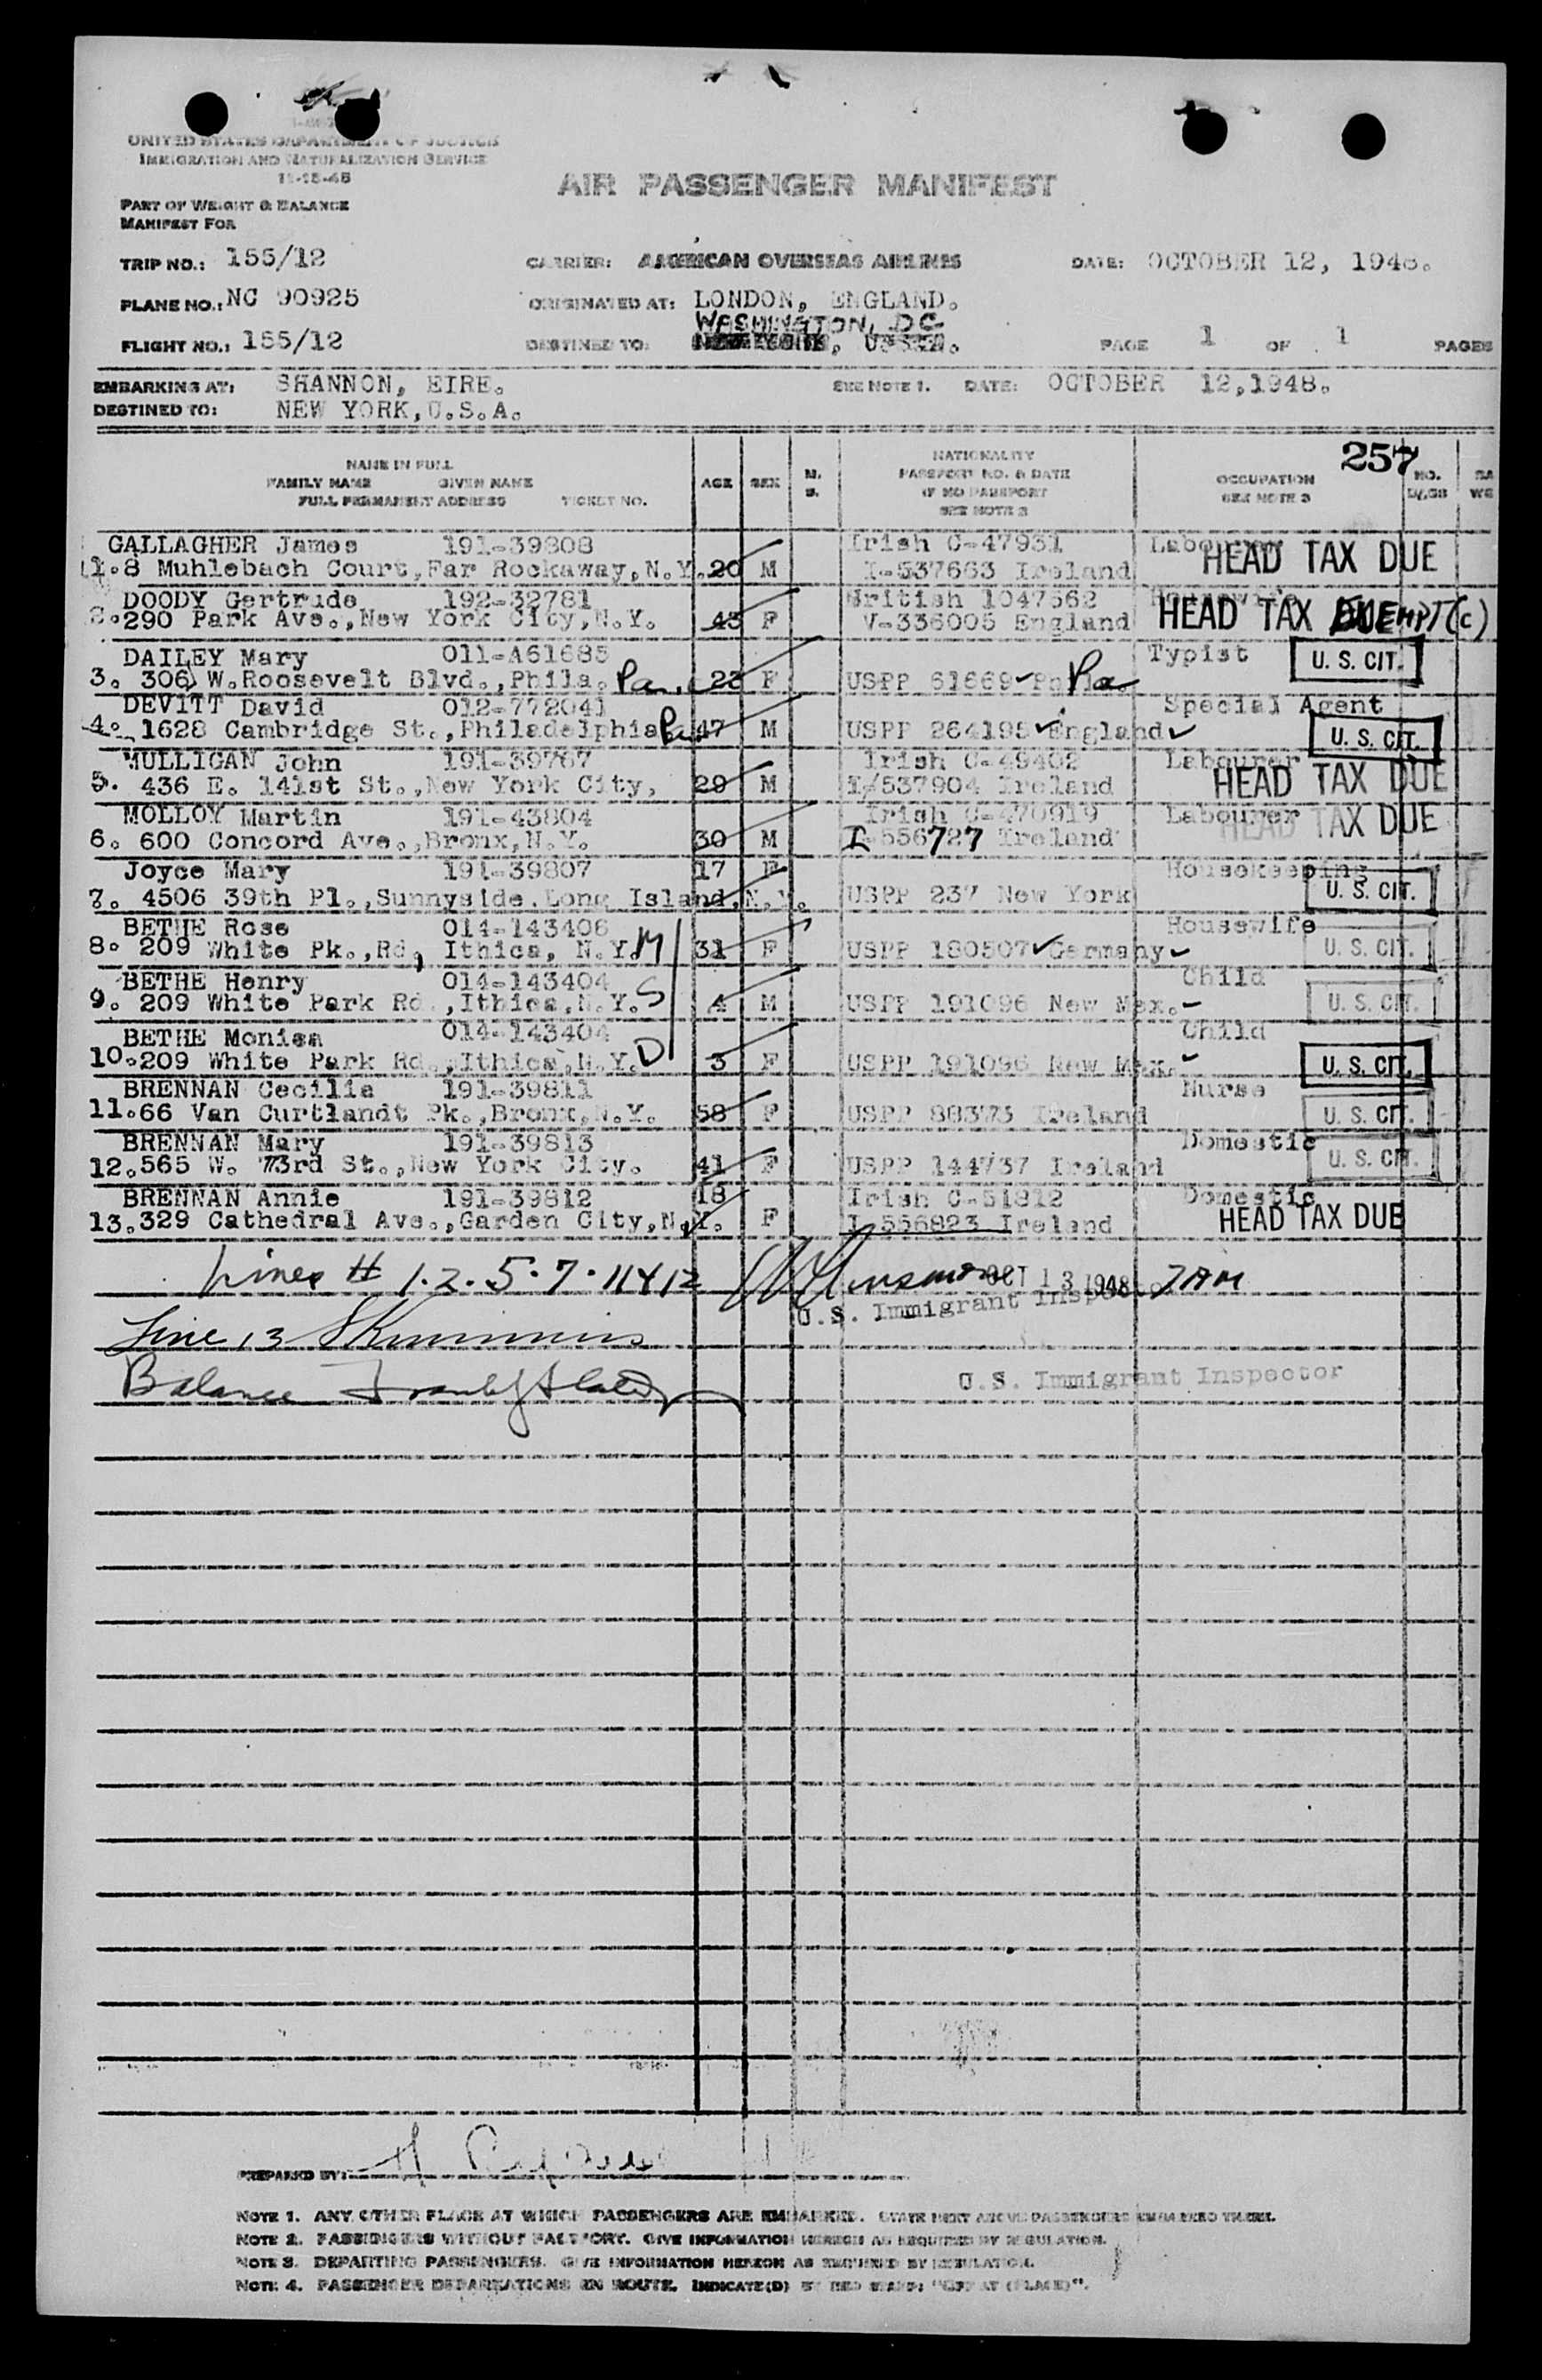 UNITED STATES DEPARTMENT OF JUSTICE
IMMIGRATION AND NATURALIZATION SERVICE
11-15-45
AIR PASSENGER MANIFEST
PART OF WEIGHT & BALANCE
MANIFEST FOR
TRIP NO.: 155/12 CARRIER: AMERICAN OVERSEAS AIRLINES DATE: OCTOBER 12, 1948.
PLANE NO.: NC 90925 ORIGINATED AT: LONDON, ENGLAND.
WASHINGTON, DC
FLIGHT NO.: 155/12 DESTINED TO: PAGE 1 OF 1 PAGES
EMBARKING AT: SHANNON, EIRE. SEE NOTE 1. DATE: OCTOBER 12,1948.
DESTINED TO: NEW YORK,U.S.A.
257
NAME IN FULL
FAMILY NAME GIVEN NAME
FULL PERMANENT ADDRESS TICKET NO.
AGE SEX M. S.
NATIONALITY
PASSPORT NO. & DATE
IF NO PASSPORT
SEE NOTE 2
OCCUPATION
SEE NOTE 3
NO. BAGS
GALLAGHER James 191-39808 Irish C-47931 Labourer
1.8 Muhlebach Court,Far Rockaway,N.Y. 20 M I-537663 Ireland HEAD TAX DUE
DOODY Gertrude 192-32781 British 1047562 Housewife
2.290 Park Ave.,New York City,N.Y. 43 F V-336005 England HEAD TAX EXEMPT(C)
DAILEY Mary 011-A61685 Typist U. S. CIT.
3. 306 W.Roosevelt Blvd.,Phila. Pa. 23 F USPP 61669 Phila. Pa
DEVITT David 012-772041 Special Agent
4. 1628 Cambridge St.,Philadelphia Pa. 47 M USPP 264195 England U. S. CIT.
MULLIGAN John 191-39767 Irish C-49402 Labourer
5. 436 E. 141st St.,New York City, 29 M I/537904 Ireland HEAD TAX DUE
MOLLOY Martin 191-43804 Irish C-470919 Labourer
6. 600 Concord Ave.,Bronx,N.Y. 30 M I-556727 Ireland HEAD TAX DUE
Joyce Mary 191-39807 17 F Housekeeping
7. 4506 39th Pl.,Sunnyside.Long Island.N.Y. USPP 237 New York U. S. CIT.
BETHE Rose 014-143406 Housewife
8. 209 White Pk.,Rd, Ithica, N.Y. M 31 F USPP 180507 Germany U. S. CIT.
BETHE Henry 014-143404 Child
9. 209 White Park Rd.,Ithica,N.Y. S 4 M USPP 191096 New Mex. U. S. CIT.
BETHE Monica 014-143404 Child
10.209 White Park Rd.,Ithica,N.Y. D 3 F USPP 191096 New Mex. U. S. CIT.
BRENNAN Cecilia 191-39811 Nurse
11.66 Van Curtlandt Pk.,Bronx,N.Y. 58 F USPP 88375 Ireland U. S. CIT.
BRENNAN Mary 191-39813 Domestic
12.565 W. 173rd St.,New York City. 41 F USPP 144737 Ireland U. S. CIT.
BRENNAN Annie 191-39812 18 Irish C-51812 Domestic
13.329 Cathedral Ave.,Garden City,N.Y. F I-556823 Ireland HEAD TAX DUE
Lines # 1.2.5.7.11 & 12 OCT 13 1948 7AM
U.S. Immigrant Inspector
Line 13
Balance
U.S. Immigrant Inspector
PREPARED BY:
NOTE 1. ANY OTHER PLACE AT WHICH PASSENGERS ARE EMBARKED. STATE NEXT ABOVE PASSENGERS EMBARKED THERE.
NOTE 2. PASSENGERS WITHOUT PASSPORT. GIVE INFORMATION HEREON AS REQUIRED BY REGULATION.
NOTE 3. DEPARTING PASSENGERS. GIVE INFORMATION HEREON AS REQUIRED BY REGULATION.
NOTE 4. PASSENGER DEPARTATIONS EN ROUTE. INDICATE(D) BY RED STAMP: "OFF AT (PLACE)".